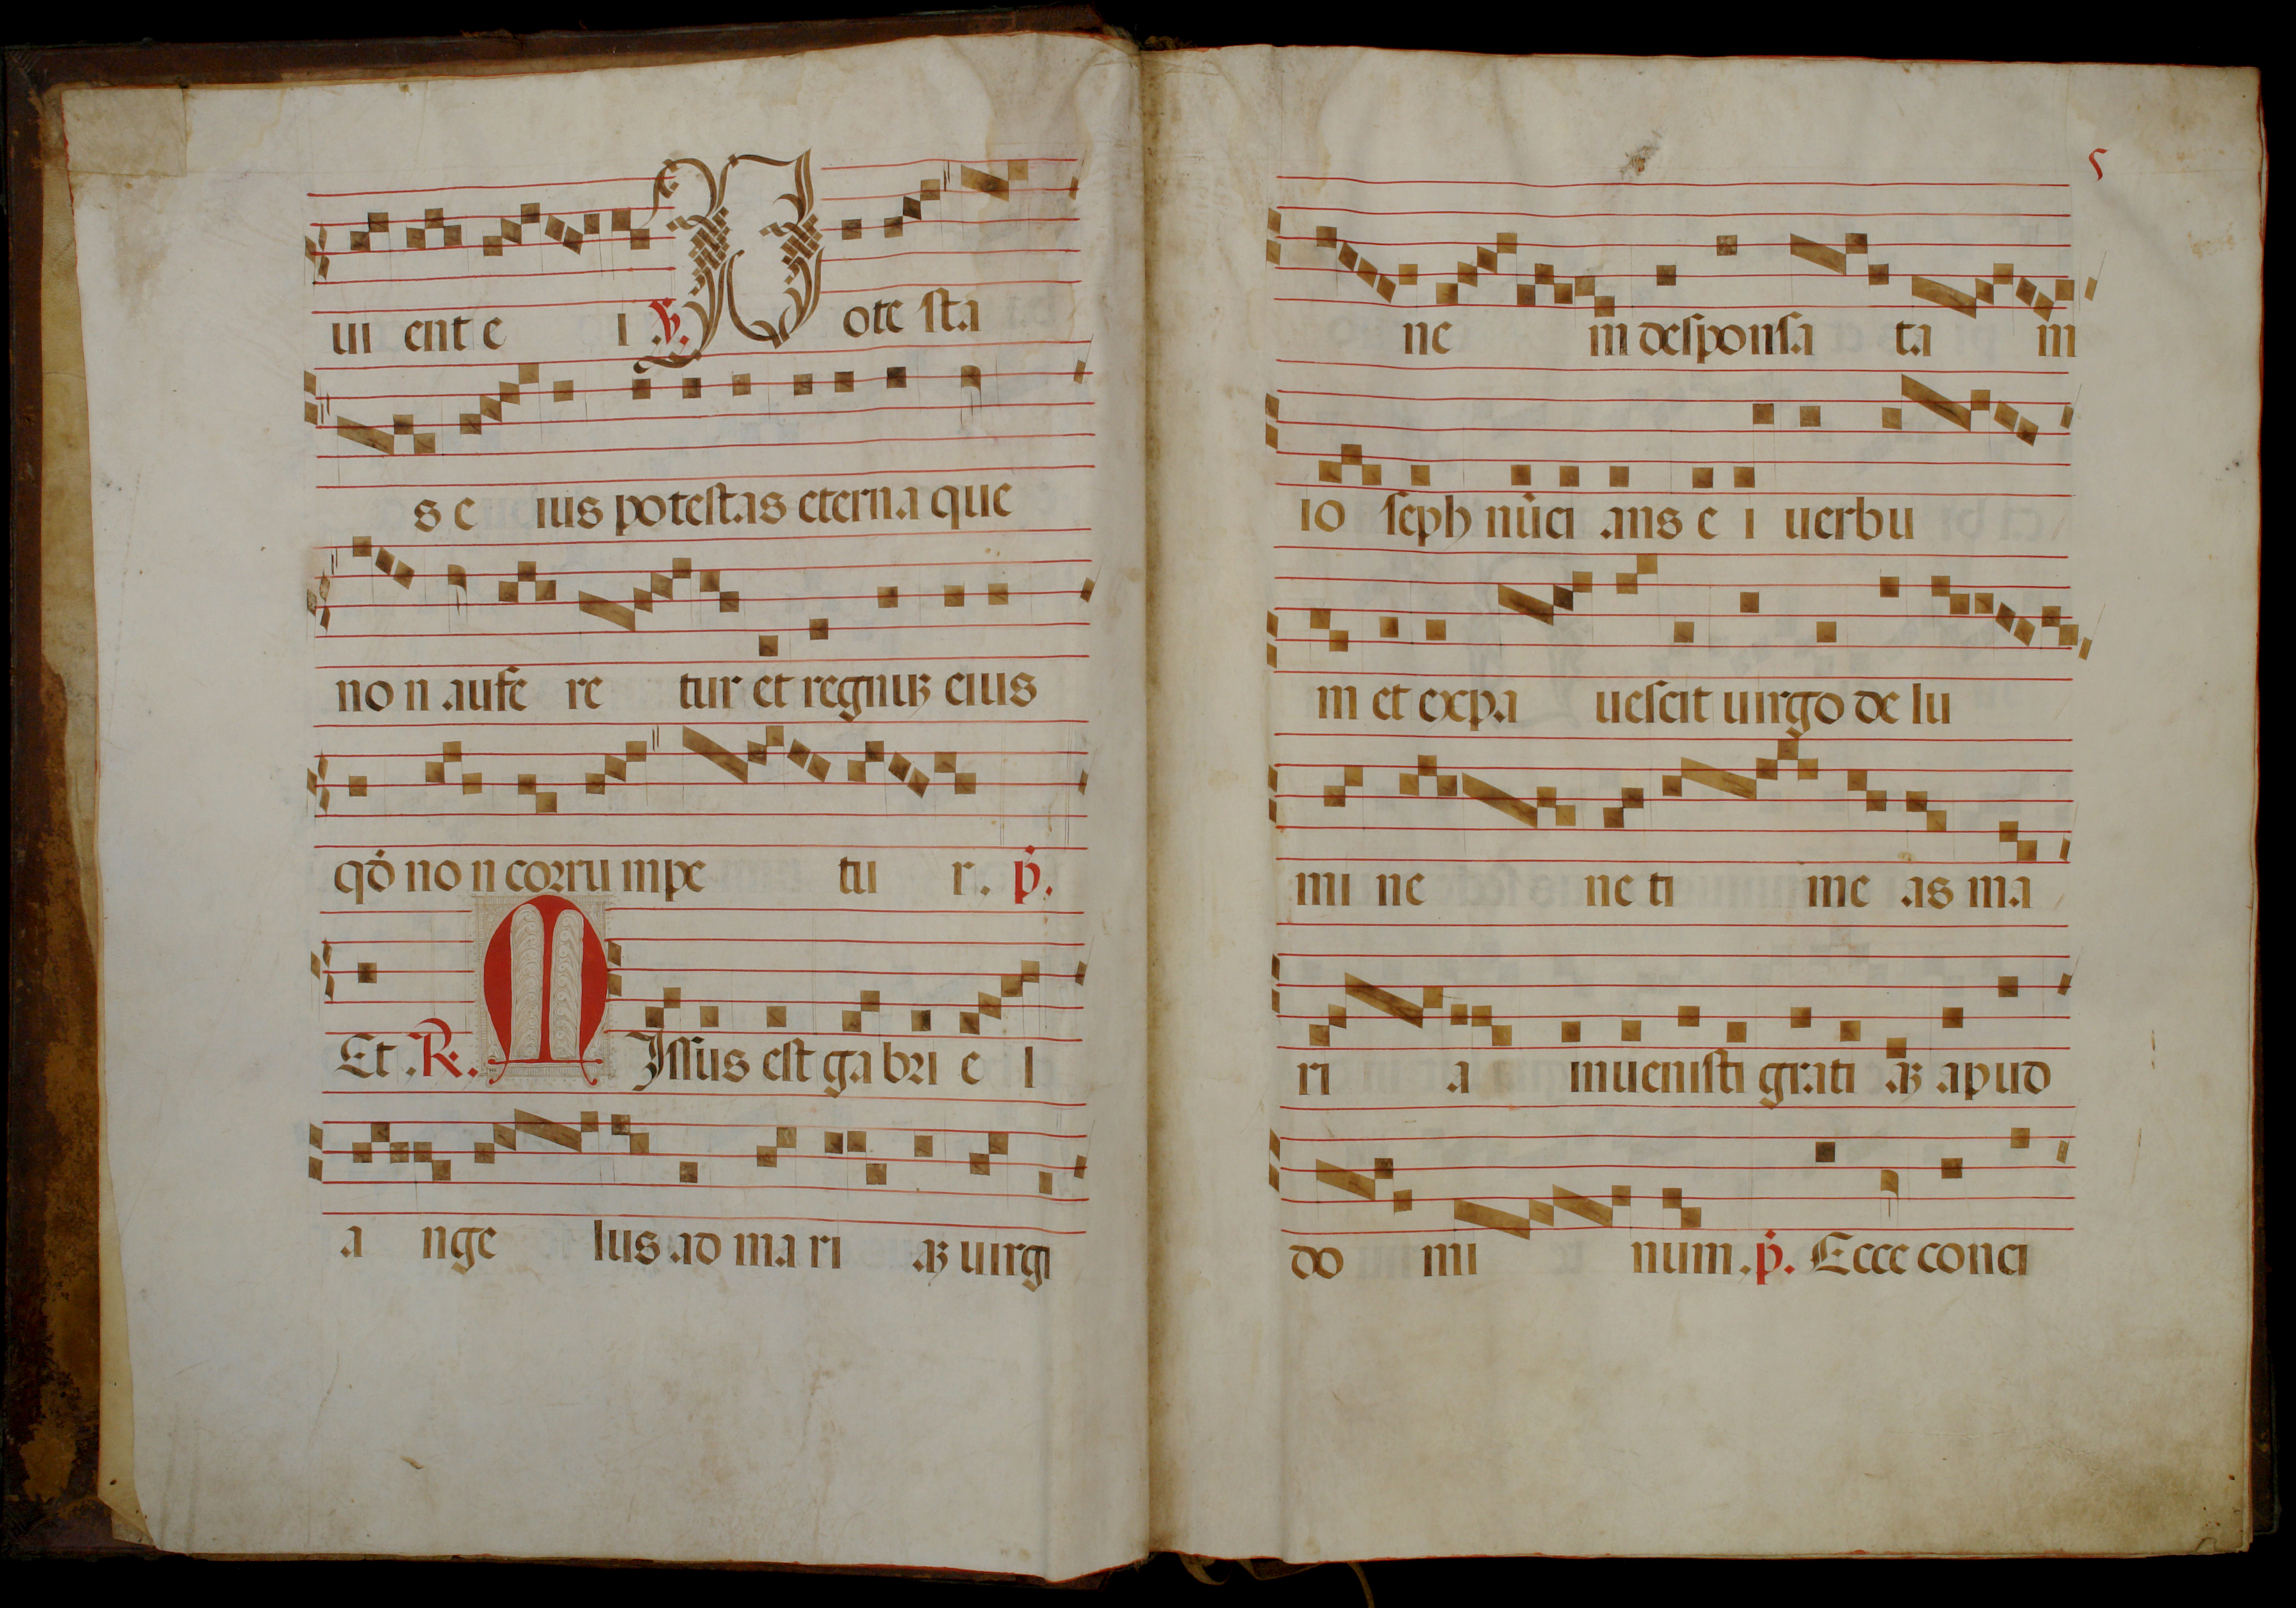 ui ent e i .℣. Pote sta
s e ius potestas eterna que
no n aufe re tur et regnuꝫ eius
qđ no n corru mpe tu r. p̄.
Et .℟. Missus est ga bri e l
a nge lus ad ma ri aꝫ uirgi
5
ne m desponsa ta m
io seph nūci ans e i uerbu
m et expa uescit uirgo de lu
mi ne ne ti me as ma
ri a inuenisti grati aꝫ apud
do mi num .p̄. Ecce conci